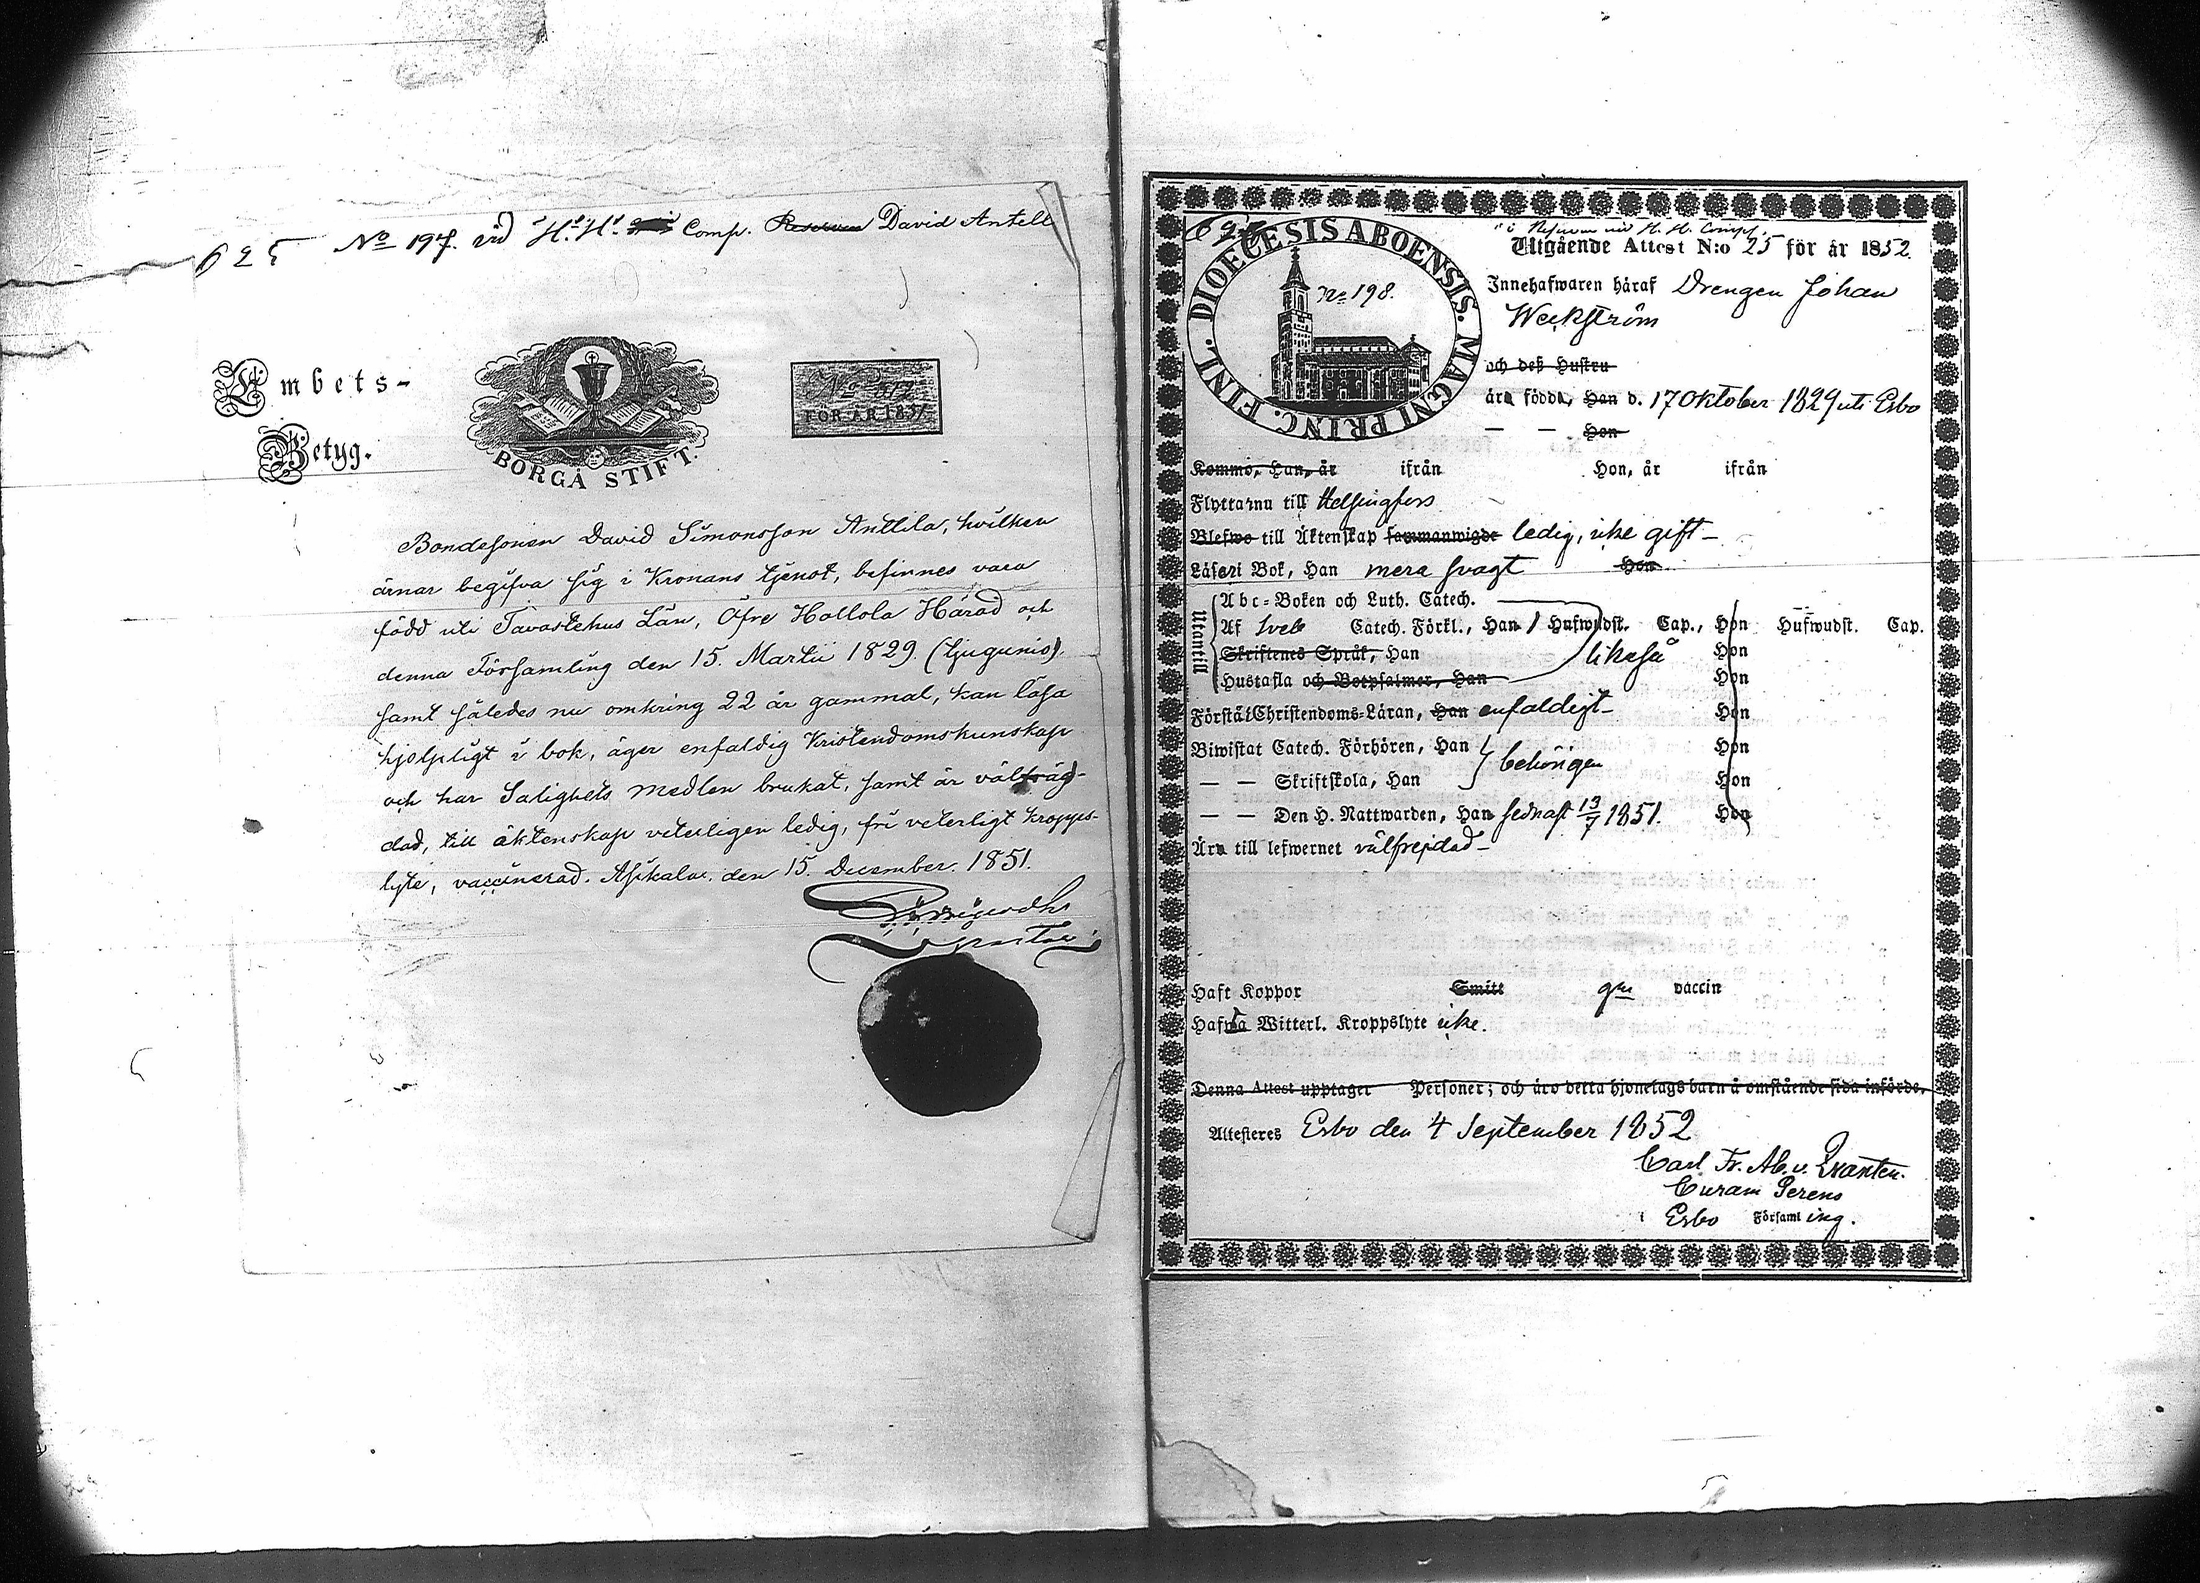 625 No 197. vid H.H. Comp. David Antell
Embets-
Betyg.
BORGÅ STIFT.
No
FÖR ÅR 1851
Bondesonen David Simonsson Anttila, hvilken
ärnar begifva sig i Kronans tjenst, befinnes vara
född uti Tavastehus Län, Öfre Hollola Härad och
denna Församling den 15. Martii 1829. (tjugunio)
samt således nu omkring 22 år gammal, kan läsa
hjelpligt i bok, äger enfaldig Kristendomskunskap
och har Salighets medlen brukat, samt är välfräg-
dad, till äktenskap veterligen ledig, fri veterligt kropps-
lyte, vaccinerad. Asikala, den 15. December. 1851.
DIOECESIS ABOENSIS. MAGNI PRINC. FINL.
No 198.
H. H. Comp.
Utgående Attest N:o 25 för år 1852.
Innehafwaren häraf Drengen Johan
Weckström
och deß Hustru
äro födde, Han d. 17 Oktober 1829 uti Esbo
— — Hon
Kommo, Han, år ifrån Hon, år ifrån
Flyttarna till Helsingfors
Blefwo till Äktenskap sammanwigde ledig, icke gift —
Läser i Bok, Han mera svagt Hon
Utantill
Abc-Boken och Luth. Catech.
Af Sveb Catech. Förkl., Han 1 Hufwudst. Cap., Hon Hufwudst. Cap.
Skriftenes Språk, Han likaså Hon
Hustafla och Botpsalmer, Han Hon
Förstår Christendoms-Läran, Han enfaldigt — Hon
Biwistat Catech. Förhören, Han behörigen Hon
— — Skriftskola, Han Hon
— — Den H. Nattwarden, Han sednast 13/7 1851. Hon
Äro till lefwernet välfrejdad —
Haft Koppor Smitt gm vaccin
Hafwa Witterl. Kroppslyte icke.
Denna Attest upptager Personer; och äro detta hjonelags barn å omstående sida införde.
Attesteres Esbo den 4 September 1852
Carl Fr. Ab. v. Qvanten.
Curam Gerens
i Esbo Församling.